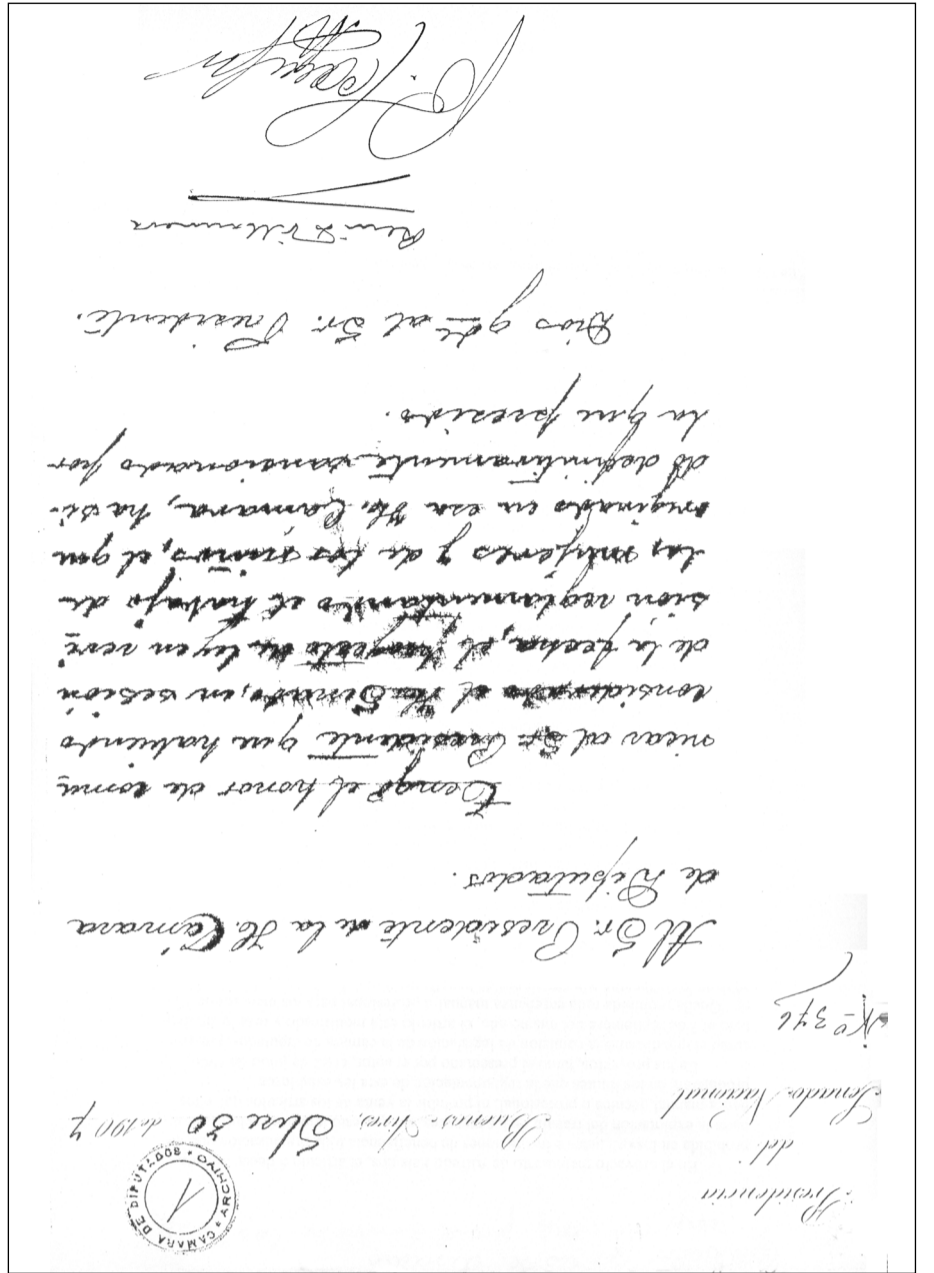 Presidencia
del
Senado Nacional
Buenos Aires, Sbre 30 de 1907
CAMARA DE DIPUTADOS • ARCHIVO •
1
Nº 376
Al Sr. Presidente de la H. Cámara
de Diputados.
Tengo el honor de comu
nicar al Sr. Presidente que habiendo
considerado el H. Senado, en sesión
de la fecha, el proyecto de ley en revi
sión reglamentando el trabajo de
las mujeres y de los niños, el que
originado en esa H. Cámara, ha si-
do definitivamente sancionado por
la que presido.
Dios gde al Sr. Presidente.
Villanueva